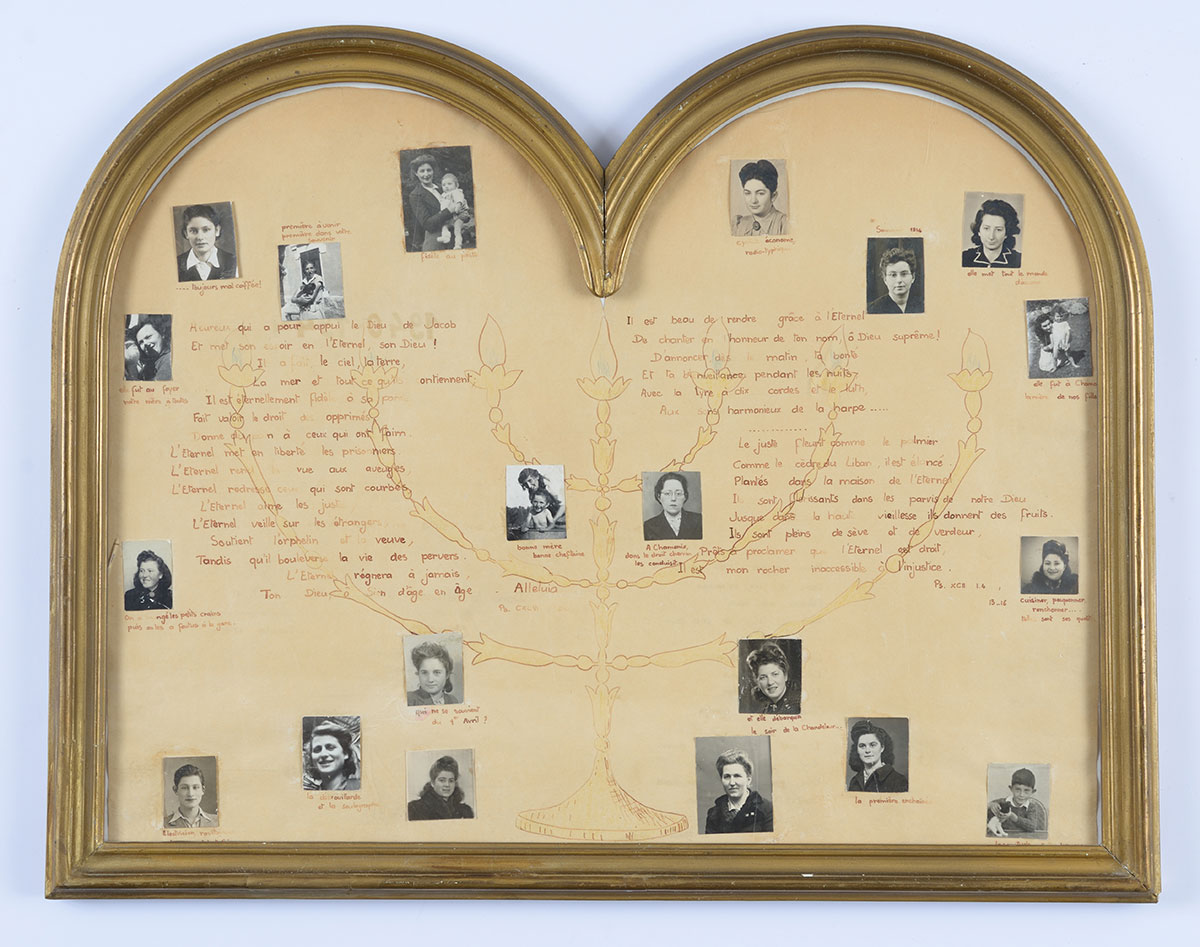 .... toujours mal coiffée!
première à servir
première dans votre
souvenir
économe,
elle met tout le monde
elle fut au foyer
notre mère à toutes
elle fut à
de nos
Heureux qui a pour appui le Dieu de Jacob
Et met son espoir en l'Eternel, son Dieu !
Il a fait le ciel la terre,
La mer et tout ce qu'ils contiennent
Il est éternellement fidèle à sa parole
Fait valoir le droit des opprimés
Donne du pain à ceux qui ont faim.
L'Eternel met en liberté les prisonniers
L'Eternel rend la vue aux aveugles,
L'Eternel redresse ceux qui sont courbés
L'Eternel aime les justes
L'Eternel veille sur les étrangers
Soutient l'orphelin et la veuve,
Tandis qu'il bouleverse la vie des pervers.
L'Eternel régnera à jamais,
Ton Dieu ô Sion d'âge en âge. Alleluia
Ps.
Il est beau de rendre grâce à l'Eternel
De chanter en l'honneur de ton nom, ô Dieu suprême!
D'annoncer dès le matin, ta bonté
Et ta bienveillance pendant les nuits,
Avec la lyre à dix cordes et le luth,
Aux sons harmonieux de la harpe .....
............
Le juste fleurit comme le palmier
Comme le cèdre du Liban, il est élancé.
Plantés dans la maison de l'Eternel
Ils sont florissants dans les parvis de notre Dieu
Jusque dans la haute vieillesse ils donnent des fruits.
Ils sont pleins de sève et de verdeur,
Prêts à proclamer que l'Eternel est droit,
Il est mon rocher inaccessible à l'injustice.
Ps. XCII 1.4,
13-16
bonne mère
bonne cheftaine
A Chamonix,
dans le droit chemin
les conduisit
les petits
puis au à la gare.
Cuisiner, pouponner
ronchonner....
sont ses
qui ne se souvient
du 1er Avril ?
et elle débarqua
le soir de la Chandeleur..
la débrouillarde
et la
la première